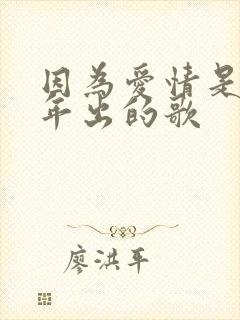 因為愛情是
年出的歌
廖洪平